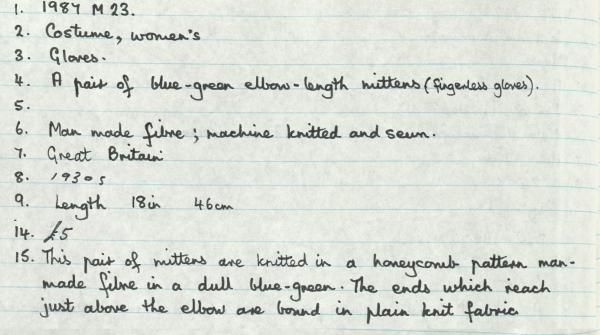 1. 1987 M 23.
2. Costume, women's
3. Gloves.
4. A pair of blue-green elbow-length mittens (fingerless gloves).
5.
6. Man made fibre; machine knitted and sewn.
7. Great Britain
8. 1930s
9. Length 18in 46cm
14. £5
15. This pair of mittens are knitted in a honeycomb pattern man-
made fibre in a dull blue-green. The ends which reach
just above the elbow are bound in plain knit fabric